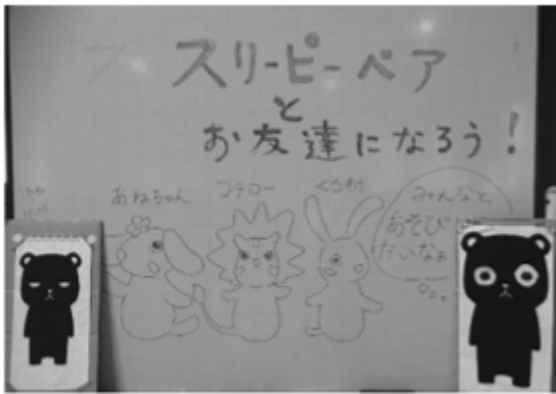 スリーピーベア
と
お友達になろう！
あねちゃん コテロー
みんなと
あそび
たいなぁ